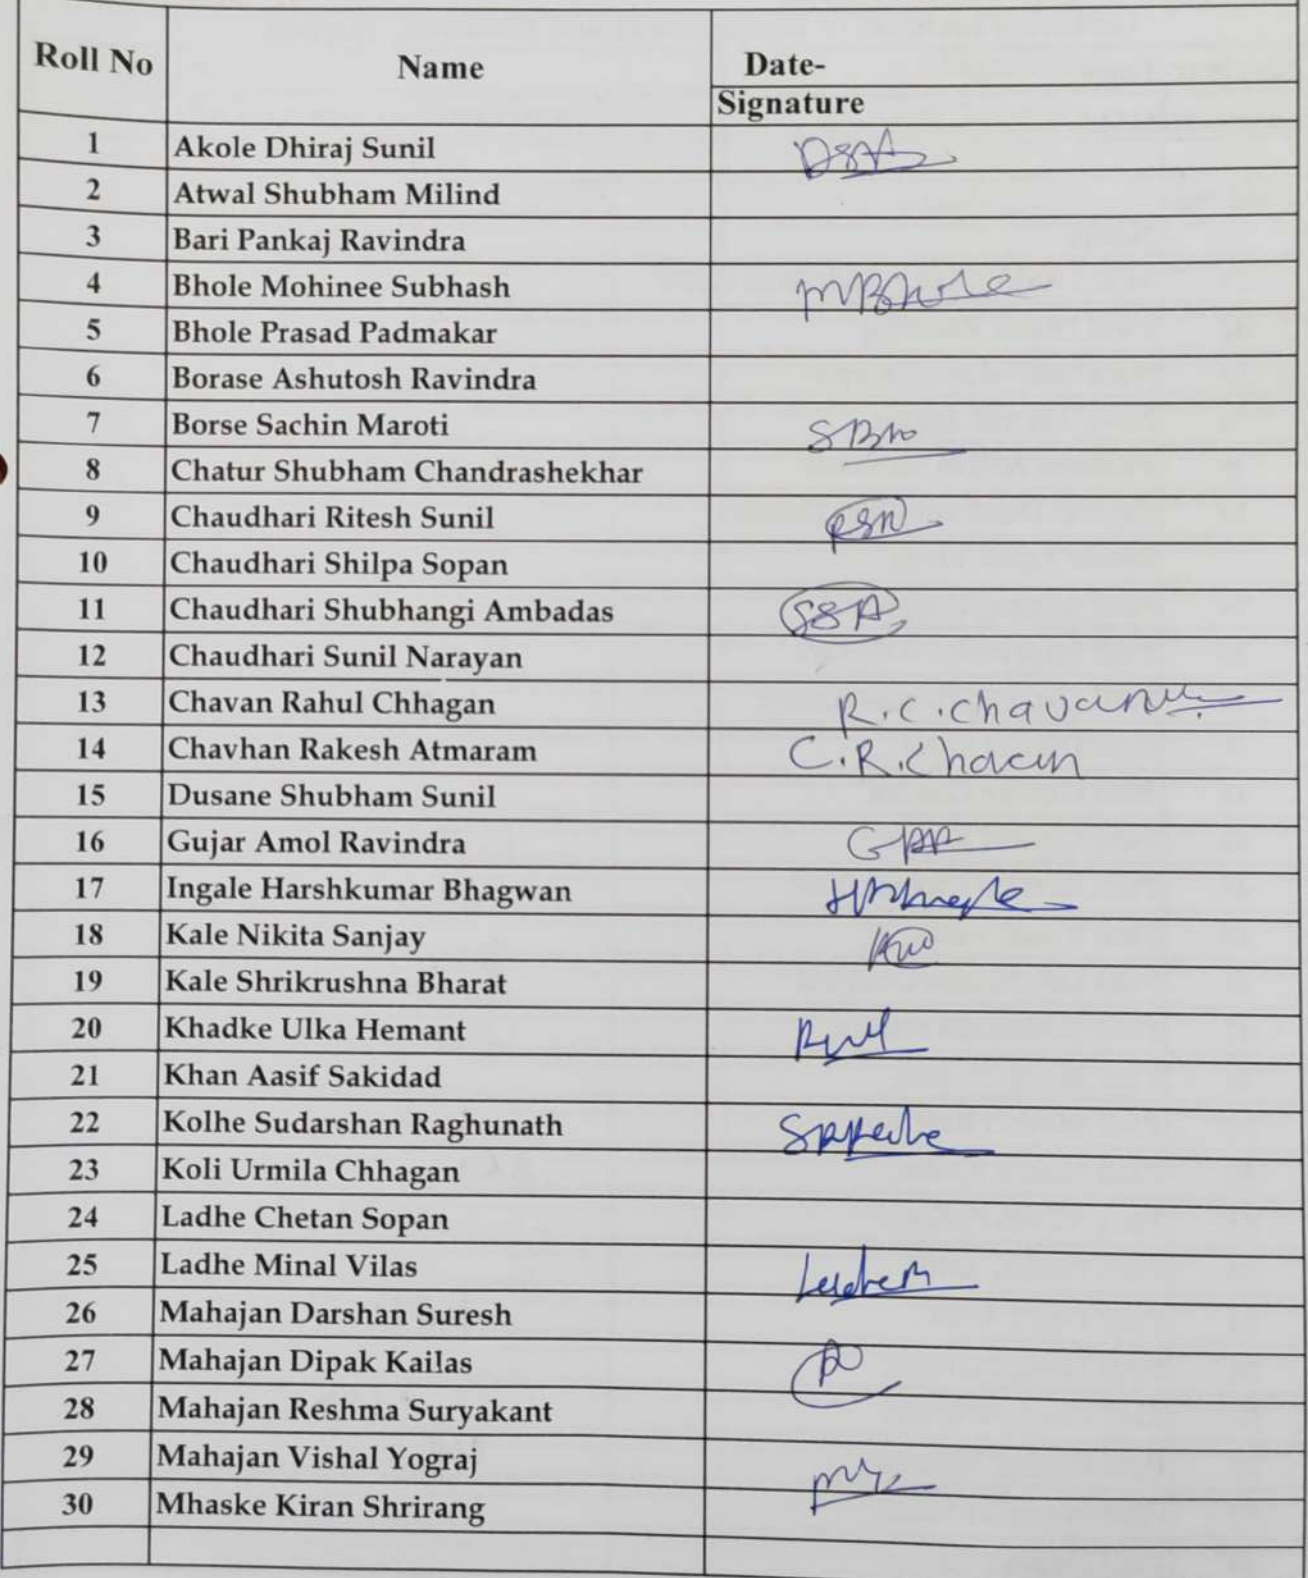 Roll No Name Date-
Signature
1 Akole Dhiraj Sunil
2 Atwal Shubham Milind
3 Bari Pankaj Ravindra
4 Bhole Mohinee Subhash MBhole
5 Bhole Prasad Padmakar
6 Borase Ashutosh Ravindra
7 Borse Sachin Maroti
8 Chatur Shubham Chandrashekhar
9 Chaudhari Ritesh Sunil
10 Chaudhari Shilpa Sopan
11 Chaudhari Shubhangi Ambadas SSA
12 Chaudhari Sunil Narayan
13 Chavan Rahul Chhagan R.C.Chavan
14 Chavhan Rakesh Atmaram
15 Dusane Shubham Sunil
16 Gujar Amol Ravindra
17 Ingale Harshkumar Bhagwan
18 Kale Nikita Sanjay
19 Kale Shrikrushna Bharat
20 Khadke Ulka Hemant
21 Khan Aasif Sakidad
22 Kolhe Sudarshan Raghunath
23 Koli Urmila Chhagan
24 Ladhe Chetan Sopan
25 Ladhe Minal Vilas
26 Mahajan Darshan Suresh
27 Mahajan Dipak Kailas
28 Mahajan Reshma Suryakant
29 Mahajan Vishal Yograj
30 Mhaske Kiran Shrirang